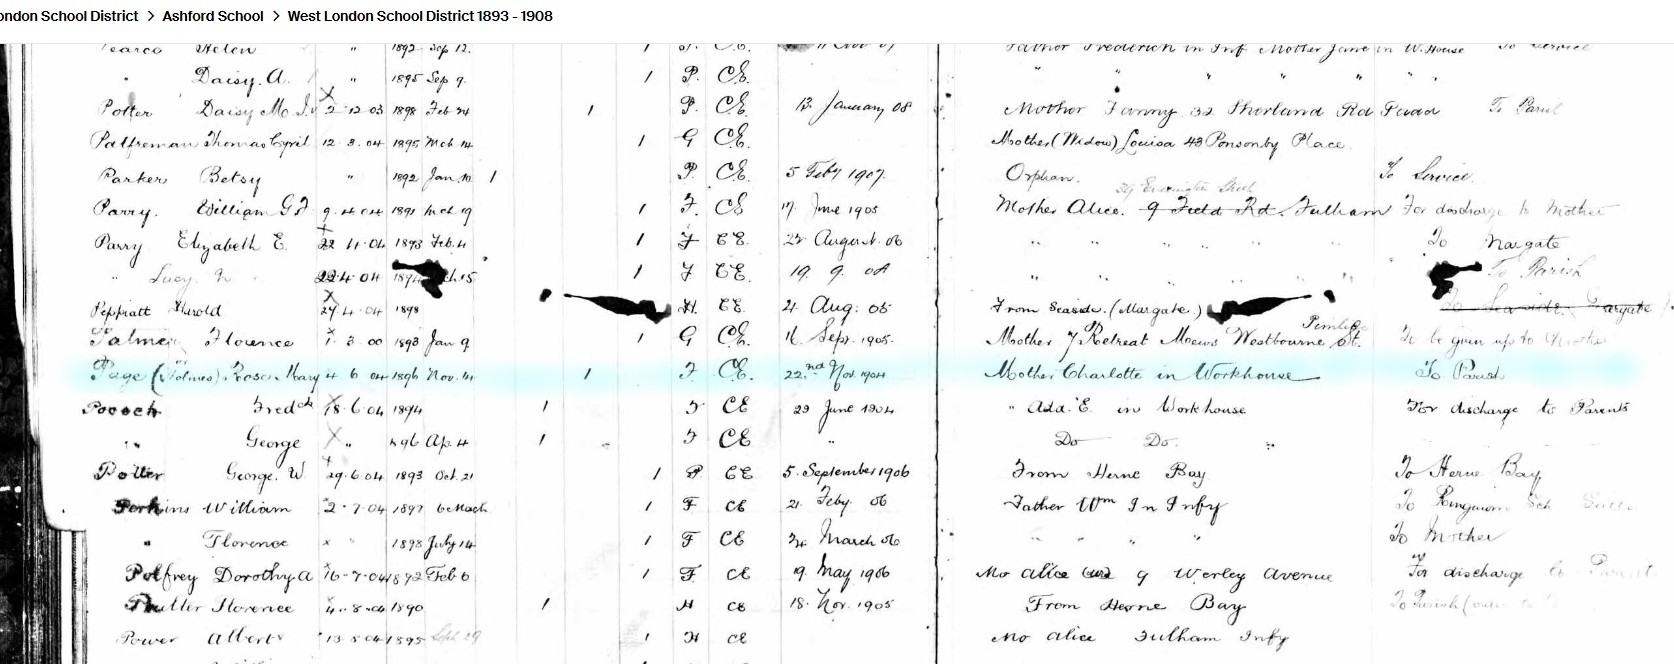 ondon School District > Ashford School > West London School District 1893 - 1908
Pearce Helen " 1892 Sep 12. 1 P. C.E. Father Frederick in Inf Mother Jane in W. House To Service
" Daisy. A. " 1895 Sep 9. 1 P. C.E. " " " " " "
Potter Daisy M. 2 12 03 1898 Feb 24 1 P. C.E. 13 January 08 Mother Fanny 32 Shorland Rd
Palfreman Thomas Cyril 12. 3. 04 1895 Mch 14 1 G C.E. Mother (Widow) Louisa 43 Ponsonby Place.
Parker Betsy " 1892 Jan 10 1 P. C.E. 5 Feby 1907. Orphan. To Service.
Parry. William G 9. 4 04 1891 Mch 19 1 F. CE 17 June 1905 Mother Alice. 9 Field Rd. Fulham For discharge to Mother
Parry Elizabeth E. 22 11. 04 1893 Feb. 4 1 F CE. August. 06 " " " " " To Margate
" Lucy. 22 4 04 15 1 F CE. 19. 9. 08 " " " " " To Parish
Peppiatt Harold 29. 4. 04 1898 H. CE. 21 Aug: 05 From Seaside. (Margate.) To Seaside. Margate
Palmer Florence 3. 00 1893 Jan 9. 1 G CE. Sept. 1905. Mother 7 Retreat Mews Westbourne St. Pimlico To be given up to Mother
Page (Holmes). Rose Mary 4. 6 04 1896 Nov. 14 1 F. C.E. 22nd Nov. 1904 Mother Charlotte in Workhouse To Parish
Pocock Fredck 18. 6. 04 1894 1 F CE 29 June 1904 " Ada. E. in Workhouse For discharge to Parents
" George " 1896 Ap. 4 1 F CE " Do Do. "
Potter George. W. 29. 6. 04 1893 Oct. 21 1 P. CE 5. September 1906 From Herne Bay To Herne Bay
Perkins William 2. 7. 04 1897 6 March 1 F CE 21. Feby 06 Father Wm In Infy To Sch
" Florence " 1898 July 14 1 F CE March 06 " " " " To Mother
Palfrey Dorothy A 16 - 7. 04 1892 Feb 6 1 F. CE 19. May 1906 Mo Alice 9 Werley Avenue For discharge to Parent
Florence 4. 8. 04 1890 1 H CE 18. Nov. 1905 From Herne Bay To Parish
Power Albert 13 8 04 1895 Sept 29 1 H CE Mo Alice Fulham Infy